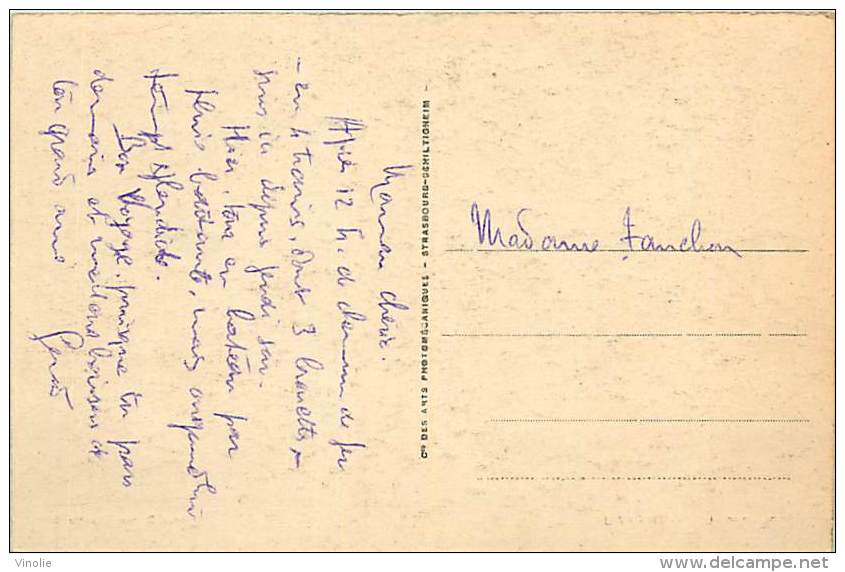 Maman chérie.
Après 12 h. de chemin de fer
- en 4 trains, dont 3 brouettes -
suis ici depuis jeudi soir.
Hier, tour en bateau par
pluie battante, mais aujourd'hui
temps splendide.
Bon voyage, puisque tu pars
demain et meilleurs baisers de
ton grand ami
Gérard
Madame Fanchon
Cie DES ARTS PHOTOMÉCANIQUES - STRASBOURG-SCHILTIGHEIM -
Vinolie
www.delcampe.net